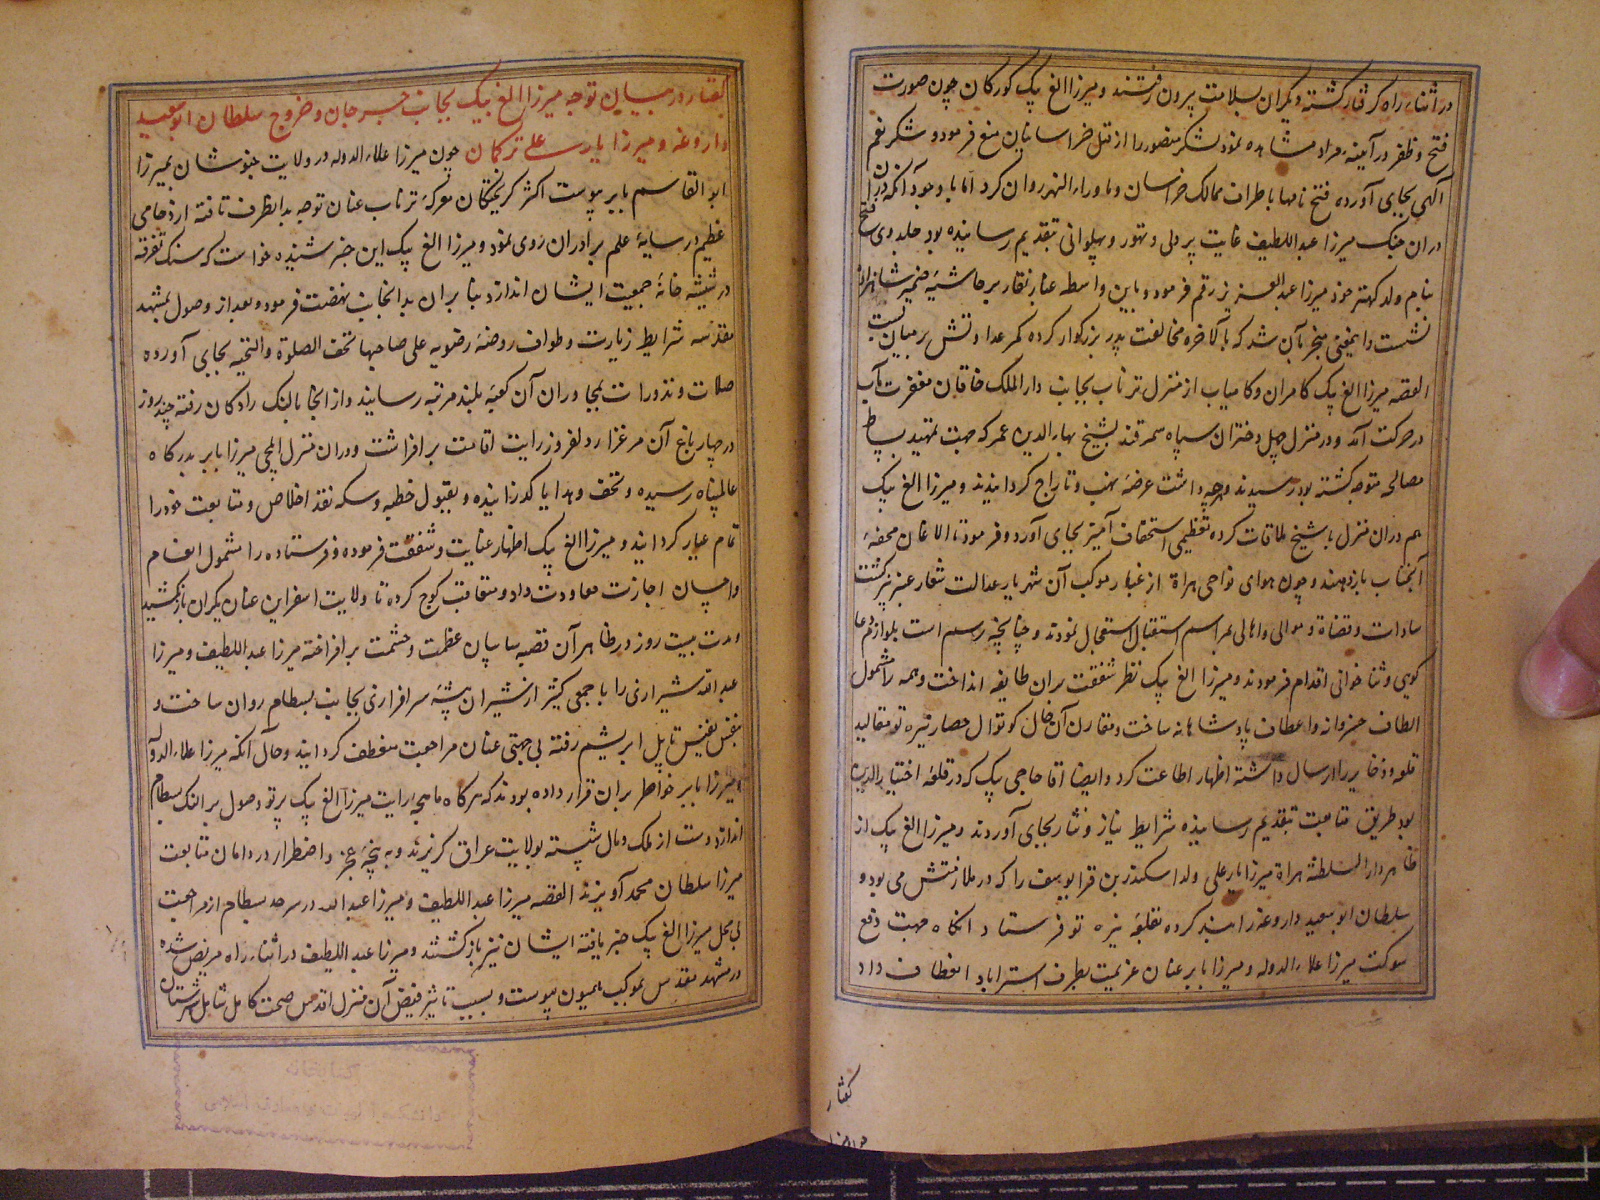 در اثناء راه گرفتار گشته دیگران بسلامت بیرون رفتند و میرزا الغ بیک کورکان چون صورت
فتح و ظفر در آیینه مراد مشاهده نمود لشکر منصور را از قتل خراسانیان منع فرمود و شکر نعم
الهی بجای آورده فتح نامها باطراف ممالک خراسان و ماوراء النهر روان کرد اما با وجود آنکه در آن
دران جنک میرزا عبد اللطیف غایت پر دلی و تهور و پهلوانی بتقدیم رسانیده بود جلدوی فتح
بنام ولد کهتر خود میرزا عبد العزیز رقم فرمود و باین واسطه غبار نقار بر حاشیه ضمیر شاهزاده
نشست و اینمعنی منجر بآن شد که بالاخره مخالفت پدر بزرکوار کرده کمر عداوتش بر میان بست
القصه میرزا الغ بیک کامران و کامیاب از منزل ترناب بجانب دار الملک خاقان مغفرت مآب
در حرکت آمد و در منزل چهل دختران سپاه سمرقند بشیخ بهاء الدین عمر که جهت تمهید بساط
مصالحه متوجه کشته بود رسیدند و هرچه داشت عرضه نهب و تاراج کردانیدند و میرزا الغ بیک
هم دران منزل با شیخ ملاقات کرده تعظیمی استخفاف آمیز بجای آورد و فرمود تا الاغان محفه
آنجناب باز دهند و چون هوای نواحی هراة از غبار موکب آن شهریار عدالت شعار عنبر بیز کشت
سادات و قضاة و موالی و اهالی بمراسم استقبال استعجال نمودند و چنانچه رسم است بلوازم دعا
کویی و ثنا خوانی اقدام فرمودند و میرزا الغ بیک نظر شفقت بران طایفه انداخت و همه را مشمول
الطاف خسروانه و اعطاف پادشاهانه ساخت و مقارن آن حال کوتوال حصار نیره تو مقالید
قلعه و ذخایر را ارسال داشته اظهار اطاعت کرد و ایضا آقا حاجی بیک که در قلعه اختیار الدین
بود طریق متابعت بتقدیم رسانیده شرایط نیاز و نثار بجای آوردند و میرزا الغ بیک از
ظاهر دار السلطنه هراة میرزا یار علی ولد اسکندر بن قرا یوسف را که در ملازمتش می بود و
سلطان ابو سعید داروغه را بند کرده بقلعه نیره تو فرستاد آنکاه جهت دفع
شوکت میرزا علاء الدوله و میرزا بابر عنان عزیمت بطرف استراباد انعطاف داد
کفتار
کفتار در بیان توجه میرزا الغ بیک بجانب جرجان و خروج سلطان ابو سعید
داروغه و میرزا یار علی ترکمان چون میرزا علاء الدوله در ولایت خبوشان بمیرزا
ابو القاسم بابر پیوست اکثر کریختکان معرکه ترناب عنان توجه بدانطرف تافته ازدحامی
عظیم در سایه علم برادران روی نمود و میرزا الغ بیک این خبر شنیده خواست که سنک تفرقه
در شیشه خانه جمعیت ایشان اندازد بنابران بدانجانب نهضت فرمود و بعد از وصول بمشهد
مقدسه شرایط زیارت و طواف روضه رضویه علی صاحبها تحف الصلوة و التحیه بجای آورده
صلات و نذورات بمجاوران آن کعبه بلند مرتبه رسانید و از انجا بالنک رادکان رفته چند روز
در چهار باغ آن مرغزار دلفروز رایت اقامت بر افراشت و دران منزل ایلچی میرزا بابر بدرکاه
عالمپناه رسیده و تحف و هدایا کذرانیده و بقبول خطبه و سکه نقد اخلاص و متابعت خود را
تمام عیار کردانید و میرزا الغ بیک اظهار عنایت و شفقت فرموده و فرستاده را مشمول انعام
و احسان اجازت معاودت داد و متعاقب کوچ کرده تا ولایت اسفراین عنان یکران باز نکشید
و مدت بیست روز در ظاهر آن قصبه سایبان عظمت و حشمت بر افراخته میرزا عبد اللطیف و میرزا
عبد الله شیرازی را با جمعی کثیر از شیران بیشه سر افرازی بجانب بسطام روان ساخت و
بنفس نفیس تا پل ابریشم رفته بی جهتی عنان مراجعت منعطف کردانید و حال آنکه میرزا علاء الدوله
و میرزا بابر خواطر بران قرار داده بودند که هرکاه ماهچه رایت میرزا الغ بیک پرتو وصول بر النک بسطام
اندازد دست از ملک و مال شسته بولایت عراق کریزند و به پنجه عجز و اضطرار در دامان متابعت
میرزا سلطان محمد آویزند القصه میرزا عبد اللطیف و میرزا عبد الله در سرحد بسطام از مراجعت
بی محل میرزا الغ بیک خبر یافته ایشان نیز باز کشتند و میرزا عبد اللطیف در اثناء راه مریض شده
در مشهد مقدس بموکب همیون پیوست و بسبب تاثیر فیض آن منزل اقدس صحت کامل شامل